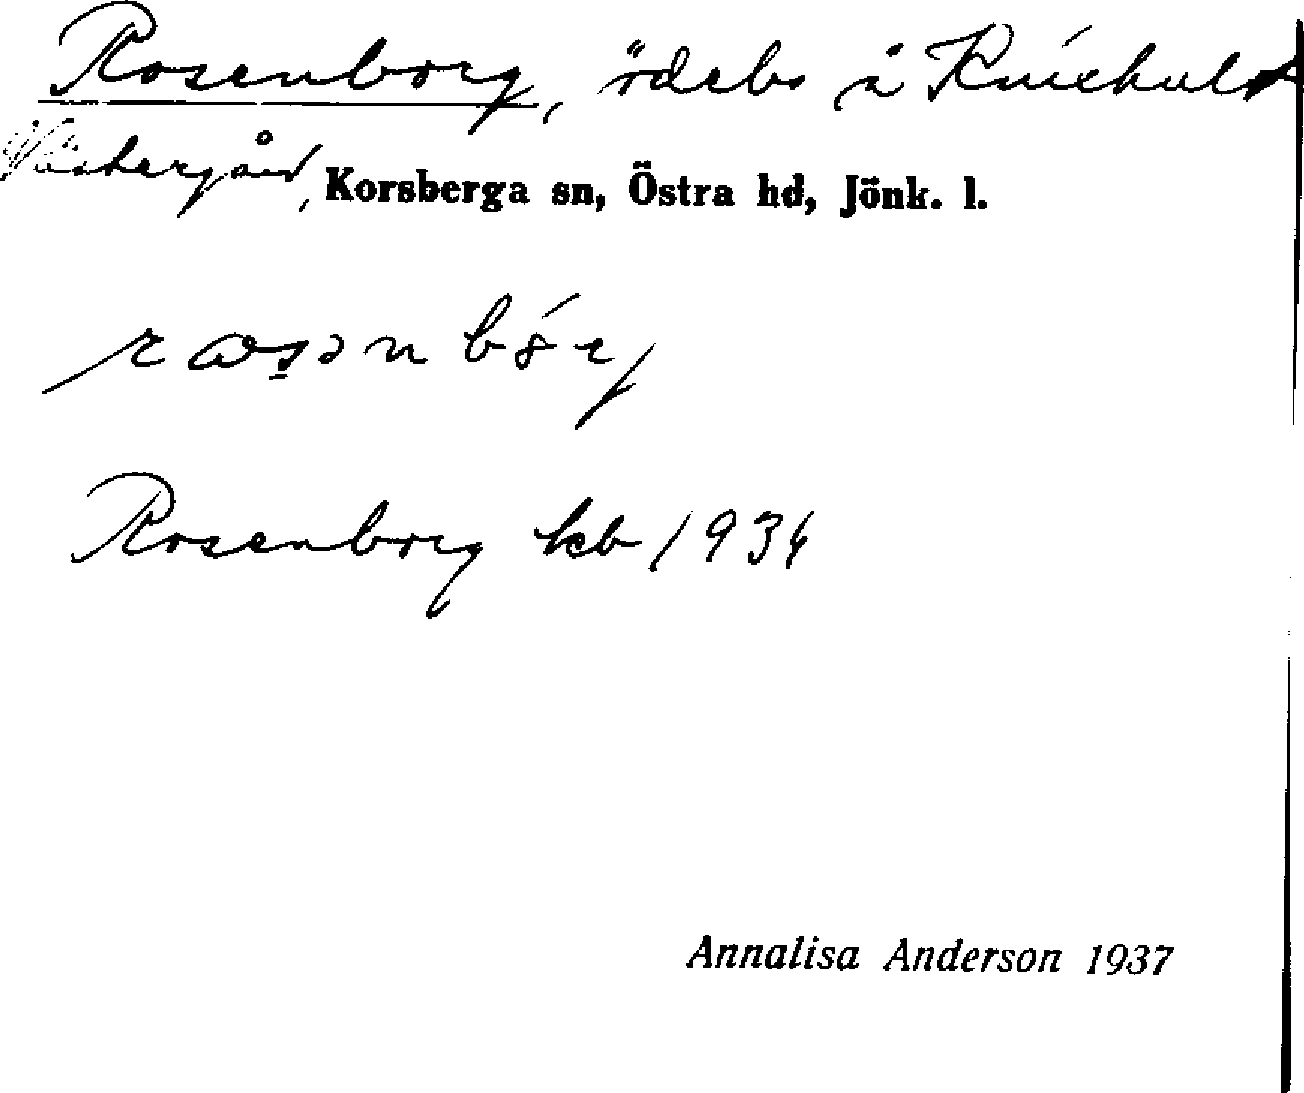 Rosenborg, ödebo i
Västergård, Korsberga sn, Östra hd, Jönk. l.
Rosenborg kb 1934
Annalisa Anderson 1937